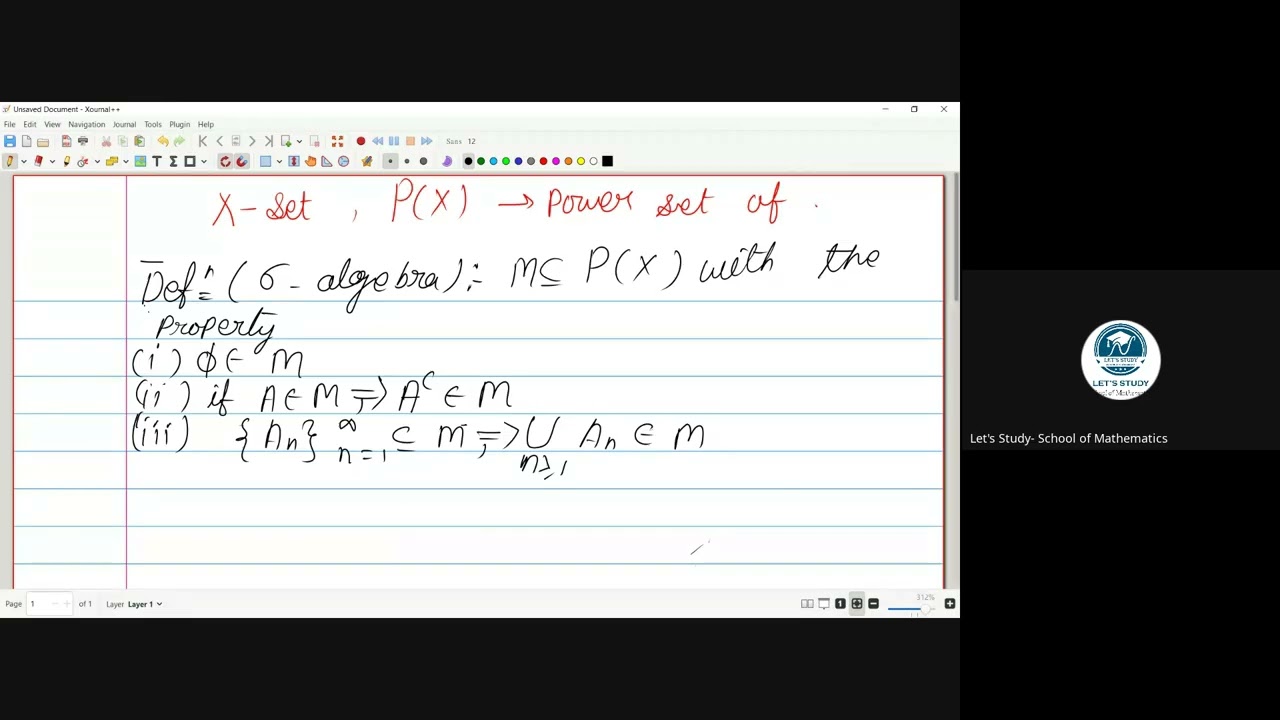 Unsaved Document - Xournal++
File Edit View Navigation Journal Tools Plugin Help
Sans 12
X - set , P(X) → Power set of
Defⁿ: (σ - algebra) :- M ⊆ P(X) with the
property
(i) ϕ ∈ M
(ii) if A ∈ M => Aᶜ ∈ M
(iii) {An}∞n=1 ⊆ M => ∪n≥1 An ∈ M
LET'S STUDY
LET'S STUDY
Let's Study- School of Mathematics
Page 1 of 1 Layer Layer 1
312%